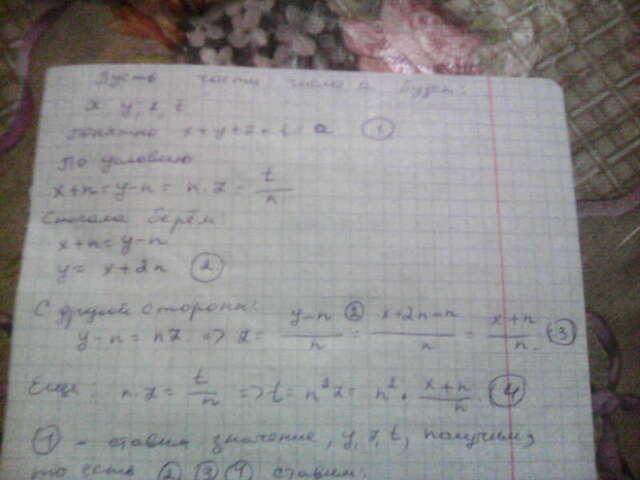 Пусть части числа a будет:
x y, z, t
понятно x+y+z+t=a ①
По условию
x+n=y-n=n·z=t/n
Сначала берём
x+n=y-n
y=x+2n ②
С другой стороны:
y-n=nz => z= y-n/n ② = x+2n-n/n = x+n/n ③
Еще n·z=t/n => t=n²z= n²·x+n/n ④
① - ставим значение, y, z, t, получим,
то есть ② ③ ④ ставим: